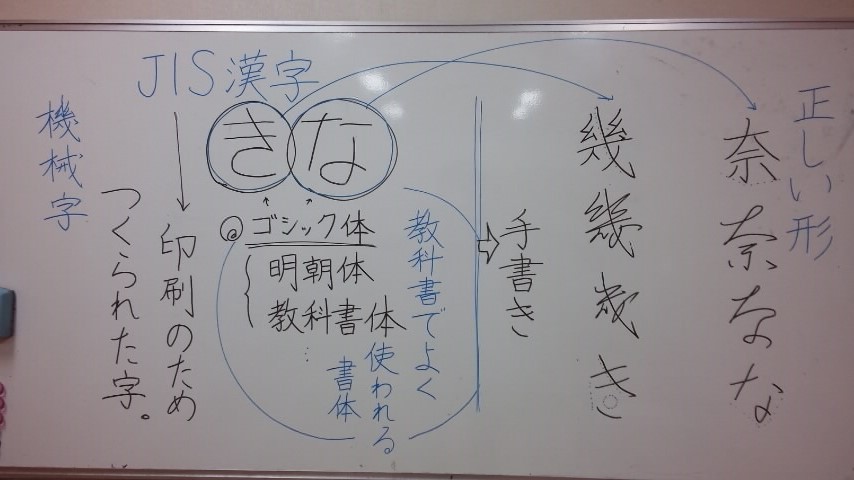 正しい形
奈奈なな
幾幾幾き
手書き
JIS漢字
きな
ゴシック体
明朝体
教科書体
教科書でよく
使われる
書体
印刷のため
つくられた字。
機械字